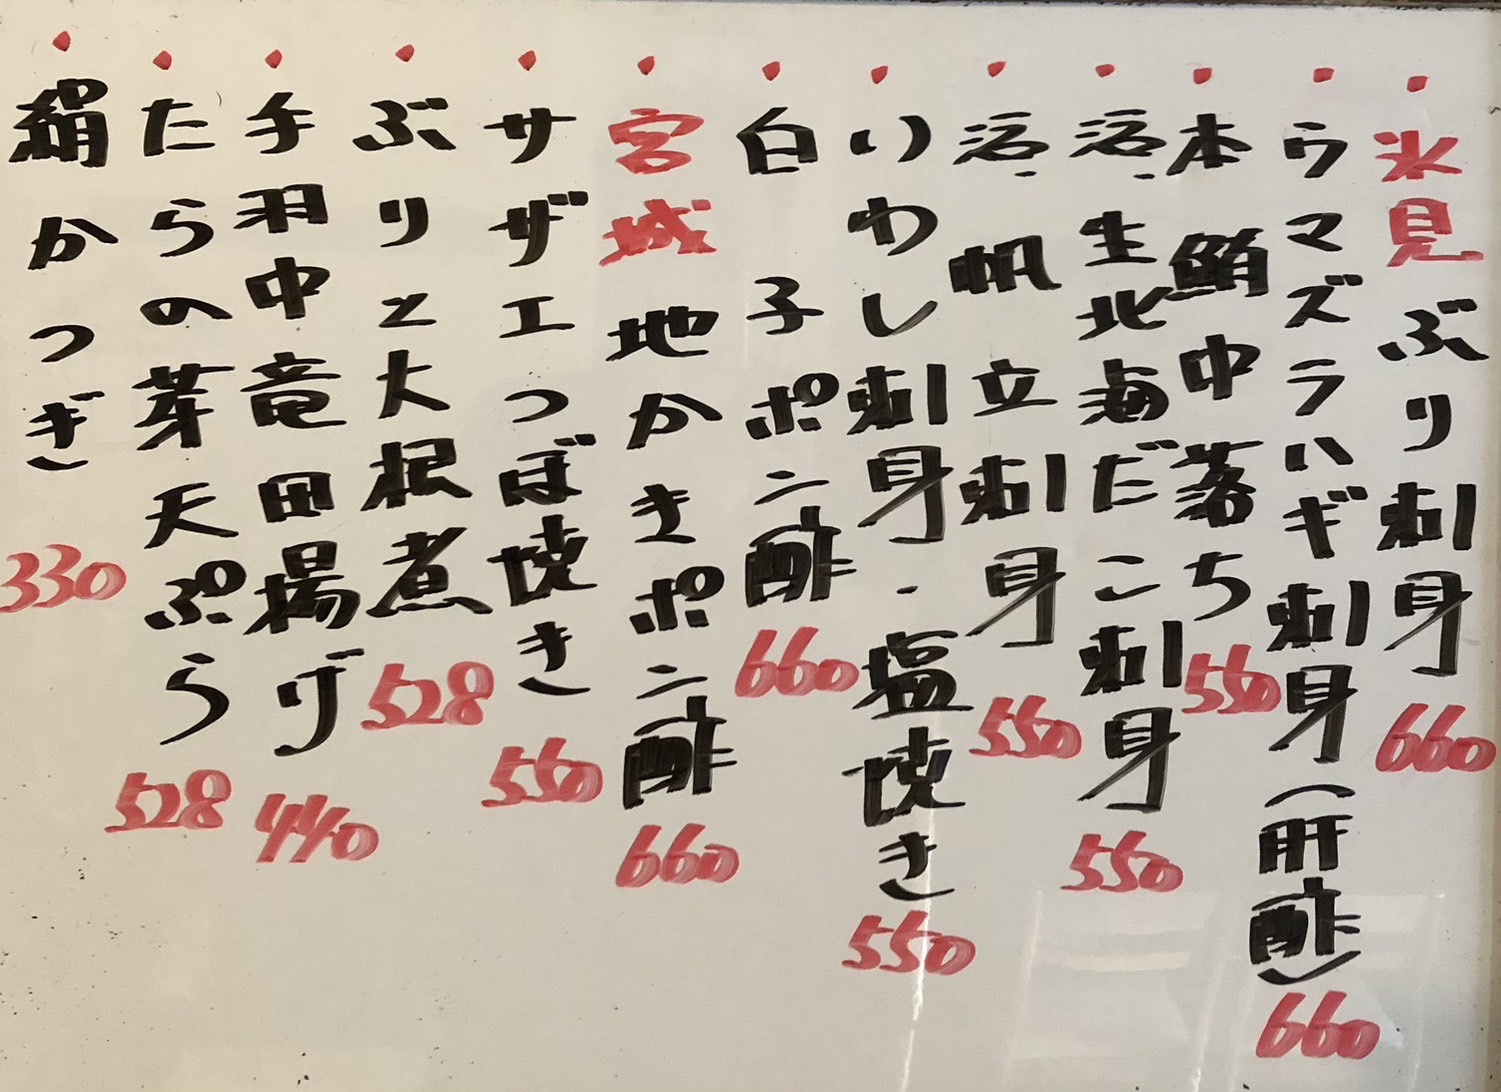 氷見ぶり刺身 660
ウマズラハギ刺身(肝酢) 660
本鮪中落ち 550
活、生北海だこ刺身 550
活、帆立刺身 550
いわし刺身・塩焼き 550
白子ポン酢 660
宮城地かきポン酢 660
サザエつぼ焼き 550
ぶりと大根煮 528
手羽中竜田揚げ 440
たらの芽天ぷら 528
絹かつぎ 330